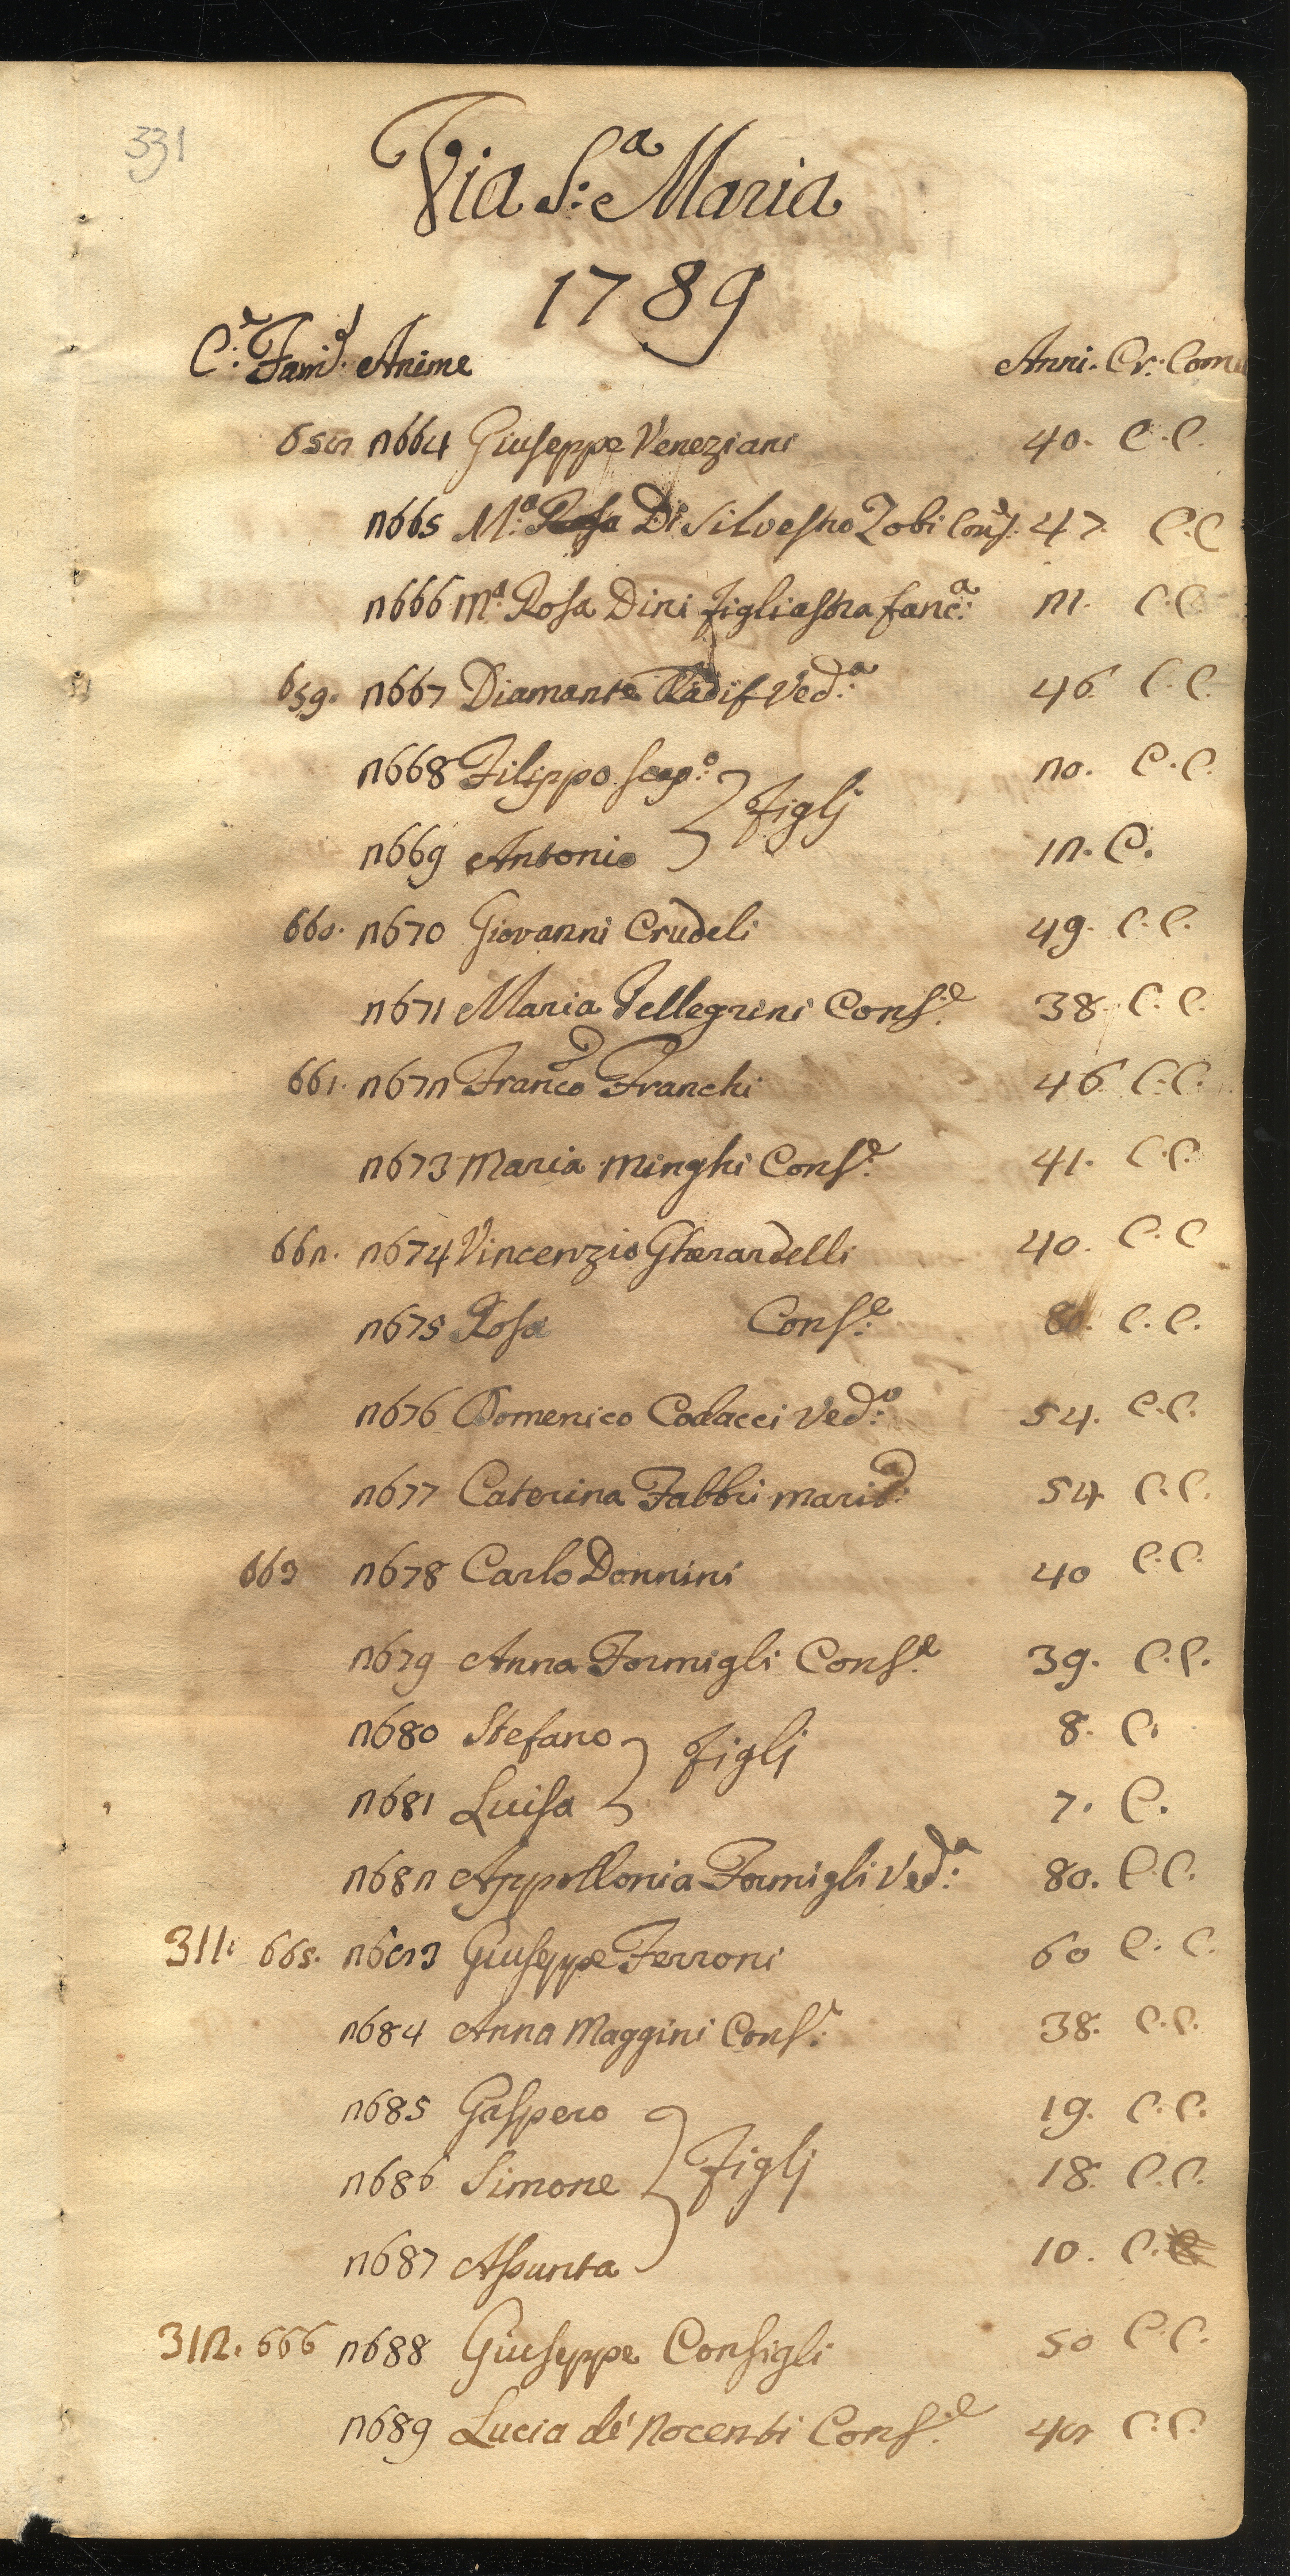 331
Via S:a Maria
1789
C:e Fam:e Anime Anni. Cr: Comu
658 2664 Giuseppe Veneziani 40. C.C.
2665 M:a Rosa Di Silvestro Zobi Cons:e 47. C.C
2666 M:a Rosa Dini figliastra fanc:a 21. C.C
659. 2667 Diamante Ved:a 46. C.C.
2668 Filippo scap:o 20. C.C.
figlj
2669 Antonio 12. C.
660. 2670 Giovanni Crudeli 49. C.C.
2671 Maria Pellegrini Cons:e 38. C.C.
661. 2672 Franco Franchi 46. C.C.
2673 Maria Minghi Cons:e 41. C.C.
662. 2674 Vincenzio Gherardelli 40. C.C
2675 Rosa Cons:e C.C.
2676 Domenico Codacci Ved:o 54. C.C.
2677 Caterina Fabbri marit:a 54 C.C.
663 2678 Carlo Donnini 40 C.C.
2679 Anna Formigli Cons:e 39. C.C.
2680 Stefano 8. C.
figlj
2681 Luisa 7. C.
2682 Appollonia Formigli Ved:a 80. C.C.
311. 665. 2683 Giuseppe Ferroni 60 C.C.
2684 Anna Maggini Cons:e 38. C.C.
2685 Gaspero 19. C.C.
2686 Simone figlj 18. C.C.
2687 Assunta 10. C.C
312. 666 2688 Giuseppe Consigli 50 C.C.
2689 Lucia de' Nocenti Cons:e 48 C.C.